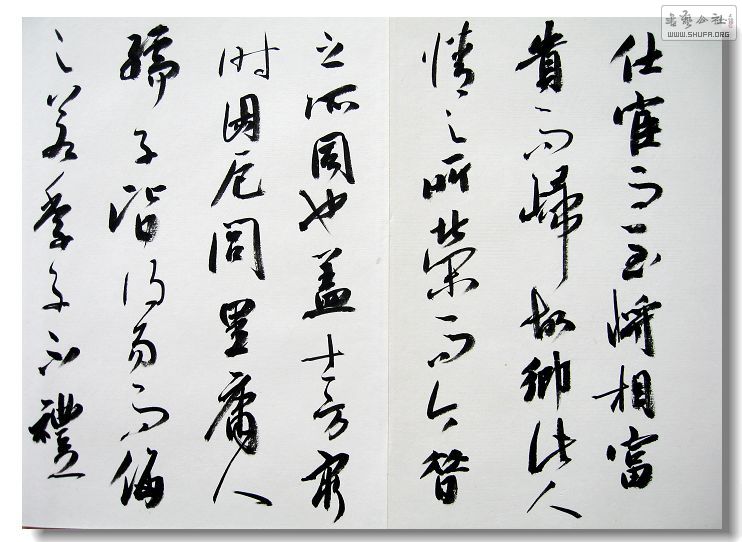 书艺公社
WWW.SHUFA.ORG
仕宦而至將相富
貴而歸故鄉此人
情之所榮而今昔
之所同也蓋士方窮
时困厄閭里庸人
孺子皆得易而侮
之若季子不禮